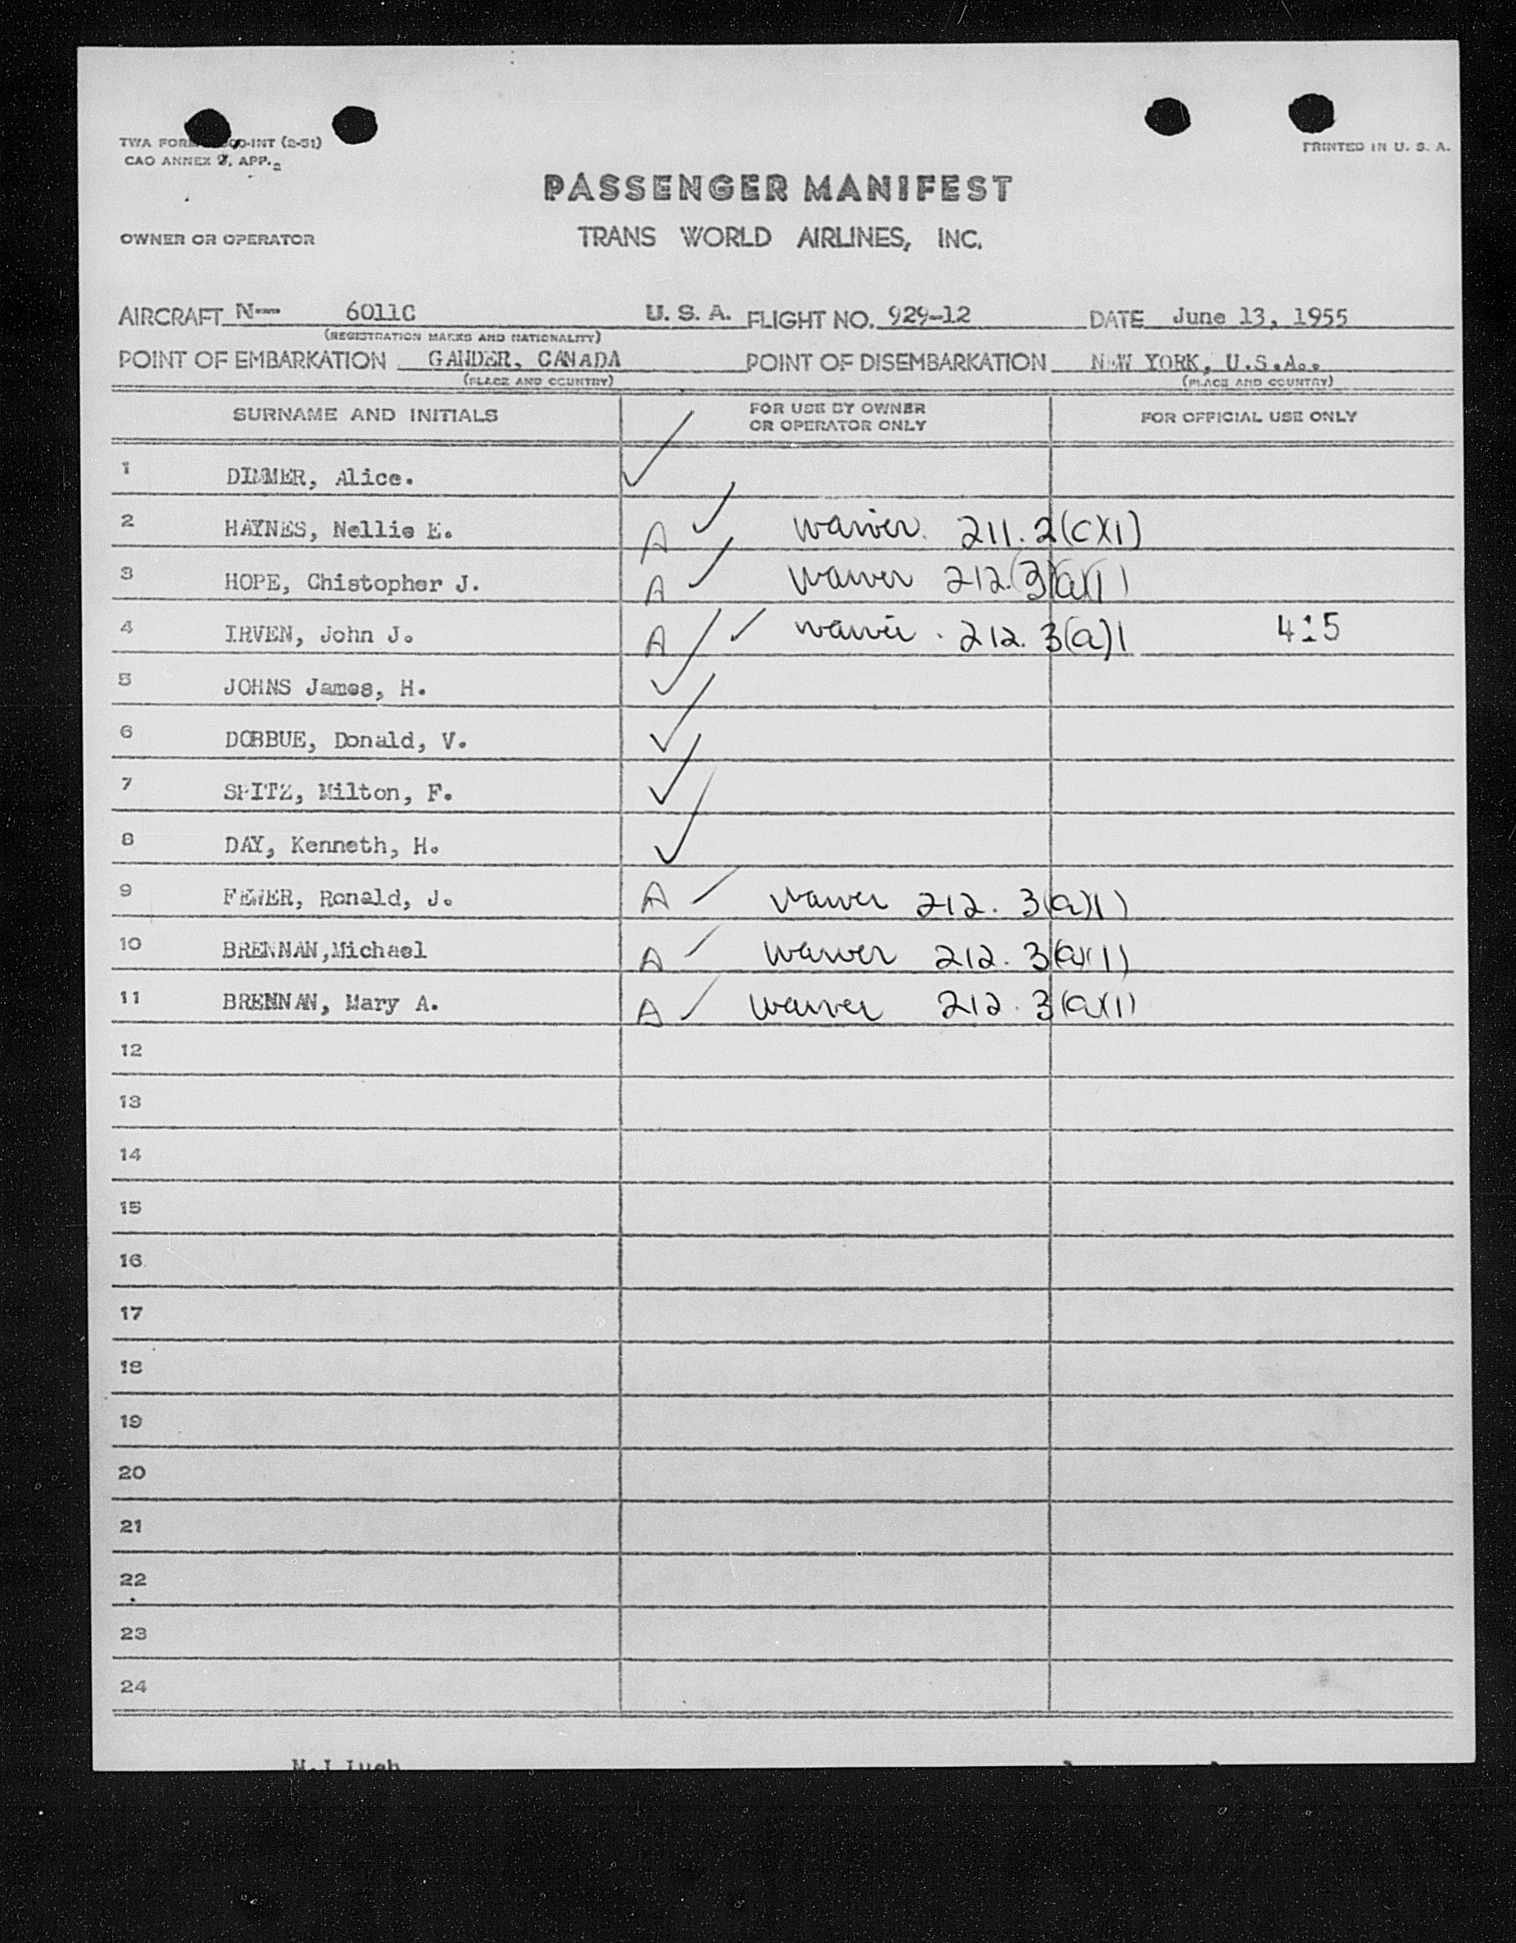 TWA FORM 800-INT (2-51)
CAO ANNEX 9, APP. 2
PRINTED IN U. S. A.
PASSENGER MANIFEST
OWNER OR OPERATOR TRANS WORLD AIRLINES, INC.
AIRCRAFT N-- 6011C U. S. A. FLIGHT NO. 929-12 DATE June 13, 1955
(REGISTRATION MARKS AND NATIONALITY)
POINT OF EMBARKATION GANDER, CANADA POINT OF DISEMBARKATION NEW YORK, U.S.A..
(PLACE AND COUNTRY) (PLACE AND COUNTRY)
SURNAME AND INITIALS FOR USE BY OWNER OR OPERATOR ONLY FOR OFFICIAL USE ONLY
1 DIMMER, Alice. ✓
2 HAYNES, Nellie E. A ✓ waiver. 211.2(c)(1)
3 HOPE, Chistopher J. A ✓ waiver 212.(3)(a)(1)
4 IRVEN, John J. A ✓ waiver. 212.3(a)1 4:5
5 JOHNS James, H. ✓
6 Donald, V. ✓
7 SPITZ, Milton, F. ✓
8 DAY, Kenneth, H. ✓
9 FEWER, Ronald, J. A ✓ waiver 212.3(a)(1)
10 BRENNAN,Michael A ✓ waiver 212.3(a)(1)
11 BRENNAN, Mary A. A ✓ waiver 212.3(a)(1)
12
13
14
15
16
17
18
19
20
21
22
23
24